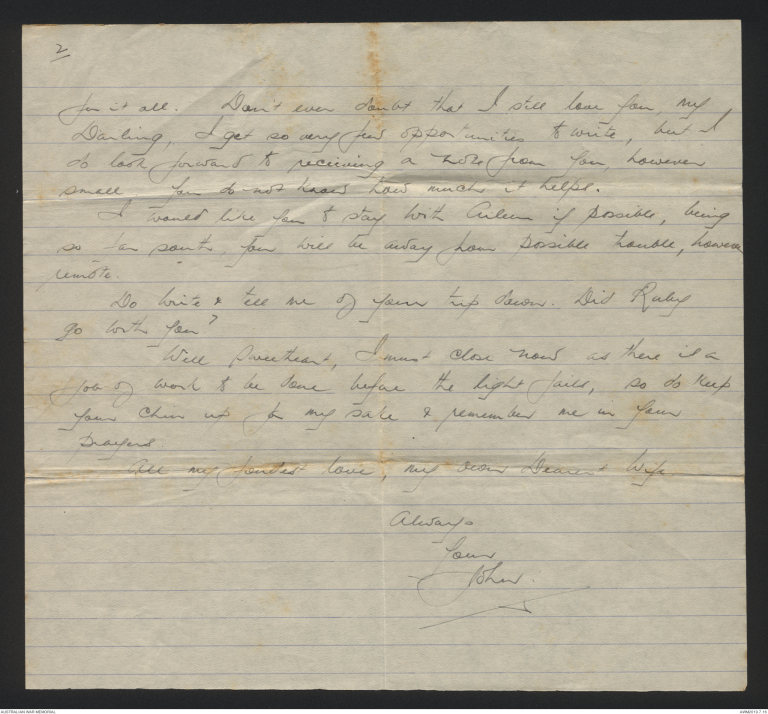 2
for it all. Don't ever doubt that I still love you, my
Darling, I get so very few opportunities to write, but I
do look forward to receiving a note from you, however
small. You do not know how much it helps.
I would like you to stay with if possible, being
so far south, you will be away from possible trouble, however
remote.
Do write & tell me of your trip down. Did Ruby
go with you?
Well Sweetheart, I must close now as there is a
job of work to be done before the light fails, so do keep
your chin up for my sake & remember me in your
prayers.
All my fondest love, my own Dearest Wife
Always
Your
John.
AUSTRALIAN WAR MEMORIAL